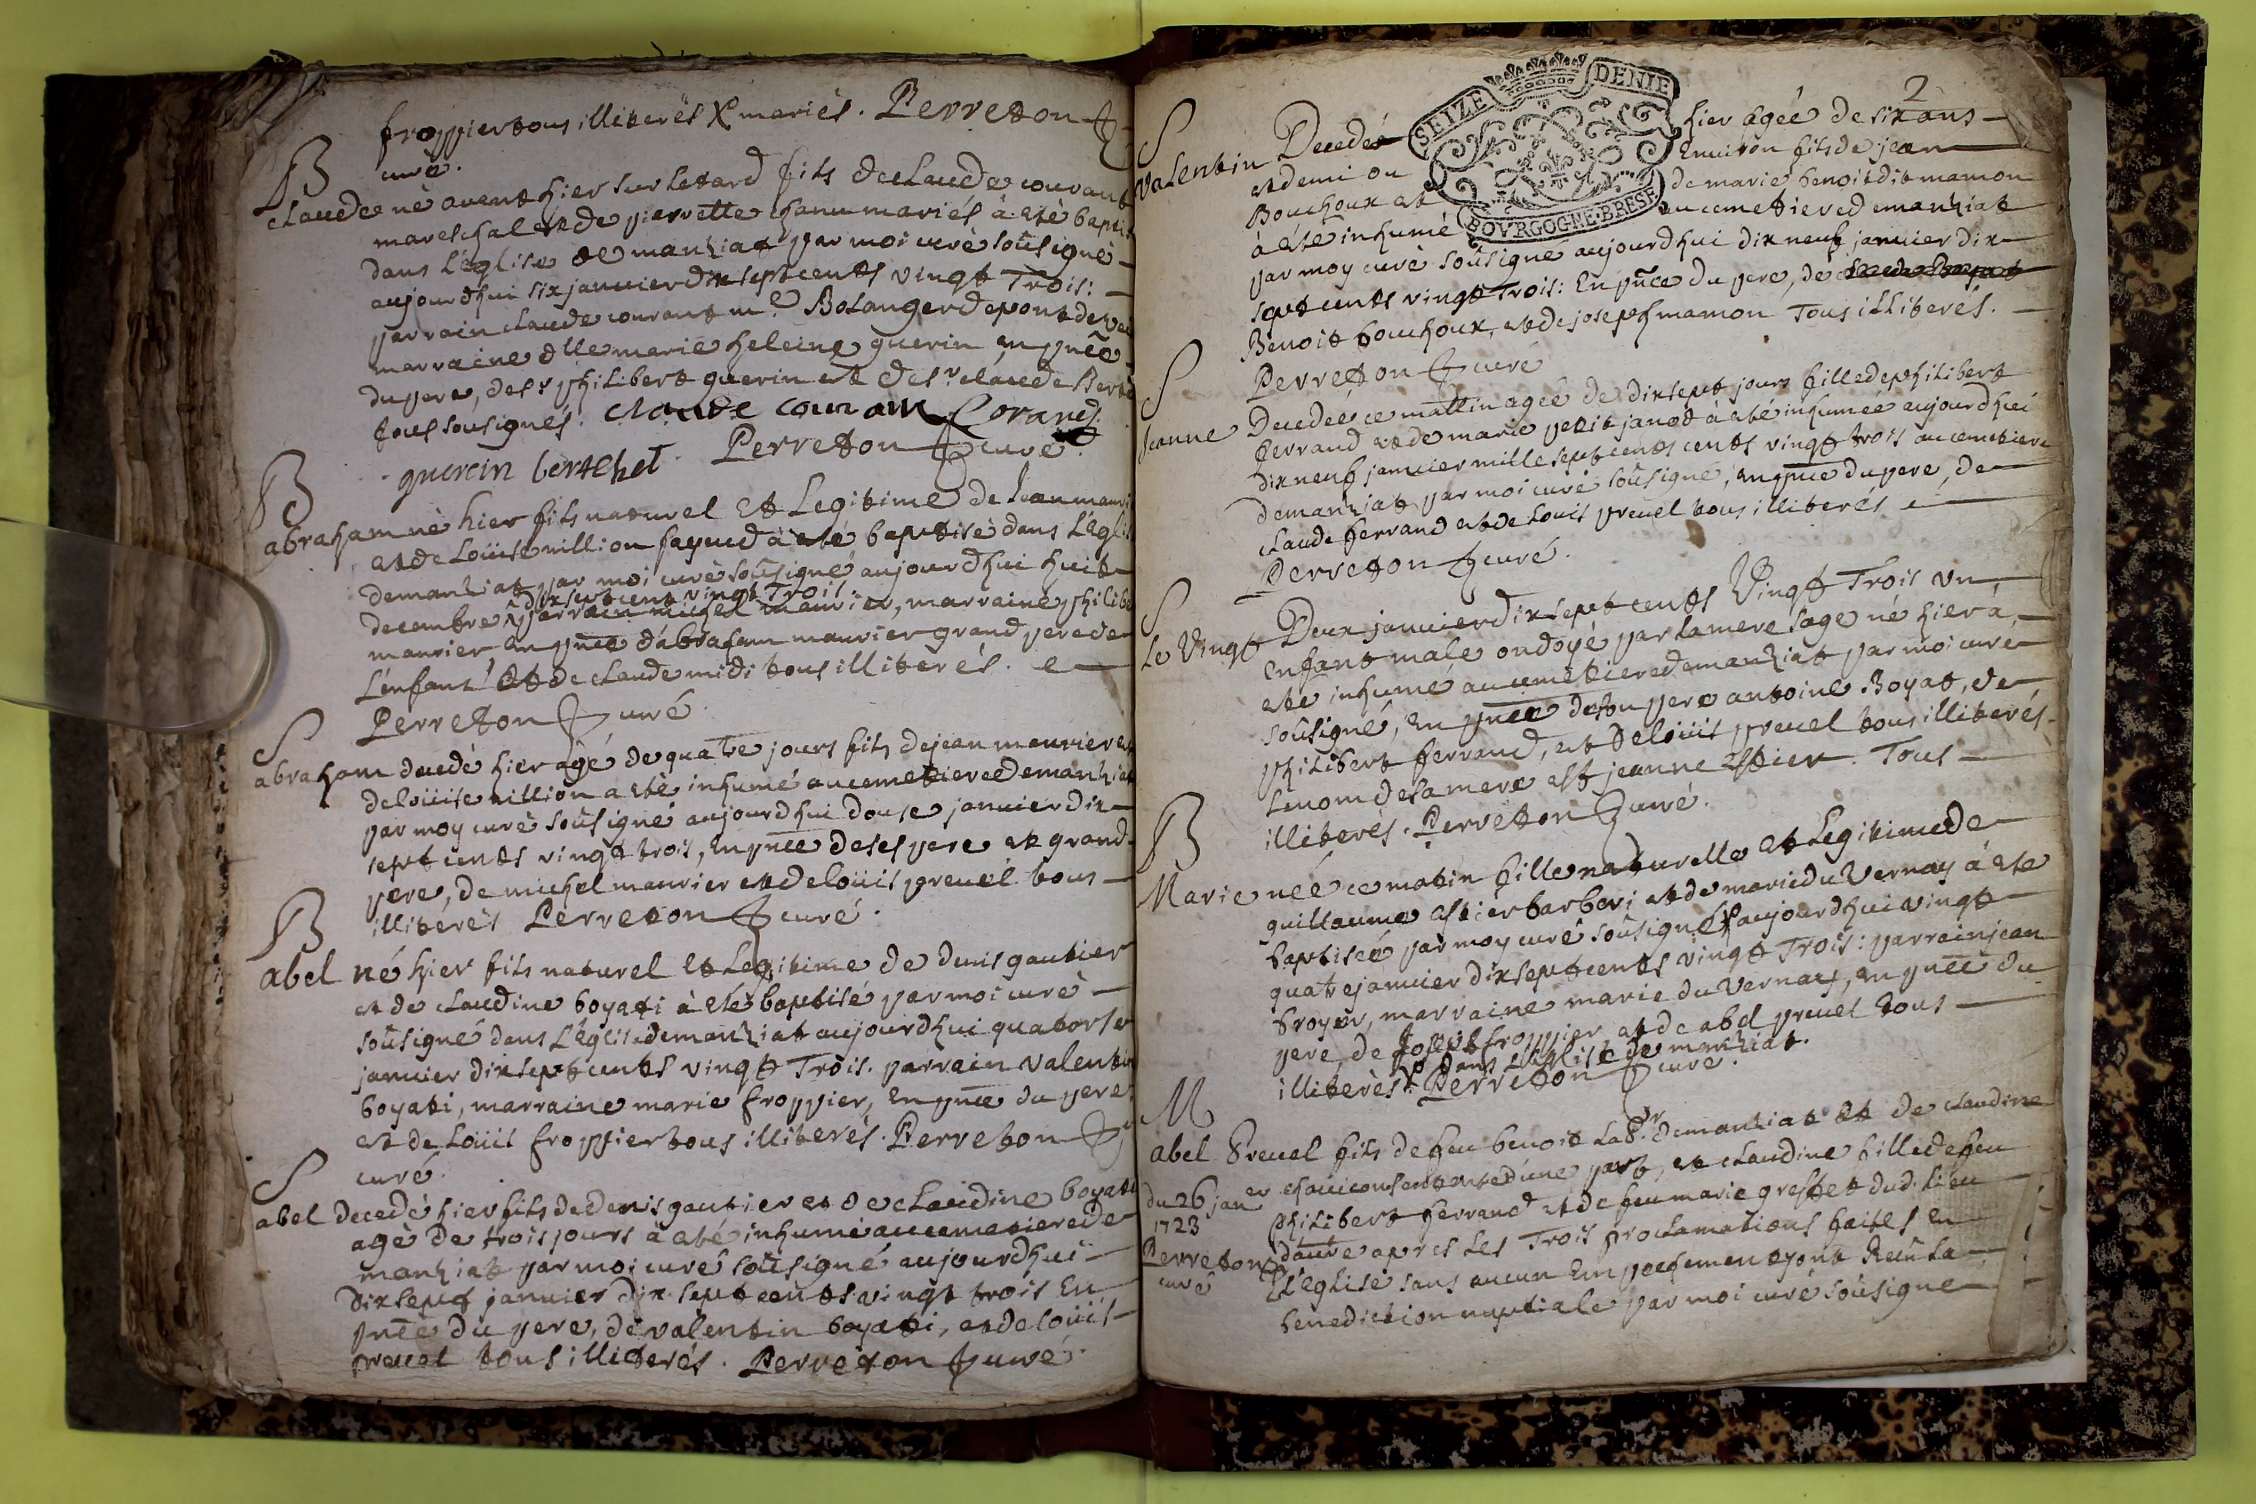 froppier tous illiterés X mariés. Perreton
curé.
B
claude né avant hier sur le tard fils de claude courant
mareschal et de pierrette chanu mariés à eté bapti
dans L'église de manziat par moi curé soûsigné
aujourdhui six janvier dix sept cents vingt Trois:
parrain claude courant me Bolanger de pont de v
marraine dlle marie heleine guerin en pñce
du pere, de sr philibert guerin et de sr claude Bert
tous sousignés. claude couran Corand
guerin berthet Perreton curé.
B
abraham né hier fils naturel Et Legitime de Jean mauri
et de Loüise million à eté baptisé dans L'égli
de manziat par moi curé soûsigné aujourdhui huit
dix sept cent vingt Trois.
decembre parrain michel maurier, marraine philibe
maurier en pñce d'abraham maurier grand pere de
L'enfant et de claude midi tous illiterés.
Perreton curé.
S
abraham decedé hier agé de quatre jours fils de jean maurier et
de loüise million a eté inhumé au cemetiere de manziat
par moy curé soûsigné aujourdhui douse janvier dix
sept cents vingt trois, En pñce de ses pere et grand
pere, de michel maurier et de loüis preuel tous
illiterés Perreton curé.
B
abel né hier fils naturel Et Legitime de denis gautier
et de claudine boyati à eté baptisé par moi curé
soûsigné dans L'église de manziat aujourdhui quatorse
janvier dix sept cents vingt Trois. parrain valentin
boyati, marraine marie froppier, En pñce du pere
et de Loüis froppier tous illiterés. Perreton
curé.
S
abel decedé hier fils de denis gautier et de claudine boyati
agé de trois jours à eté inhumé au cemetiere de
manziat par moi curé soûsigné aujourdhui
dix sept janvier dix sept cents vingt trois En
pñce du pere, de valentin boyati, et de loüis
preuel tous illiterés. Perreton curé.
2
SEIZE DENIE
BOVRGOGNE·BRESE
S
valentin Decedé hier agée de six ans
et demi ou Environ fils de jean
Bouchoux et de marie benoit dit mamon
à eté inhumé au cemetiere de manziat
par moy curé soûsigné aujourdhui dix neuf janvier dix
sept cents vingt Trois: En pñce du pere, de
Benoit bouchoux, et de joseph mamon Tous illiterés.
Perreton curé
S
Jeanne Decedée ce mattin agée de dix sept jours fille de philibert
ferrand et de marie petit janod à eté inhumée aujourdhui
dix neuf janvier mille sept cents cents vingt trois au cemetiere
de manziat par moi curé soûsigné, en pñce du pere, de
claude ferrand et de Louis preuel tous illiterés
Perreton curé.
S
Le Vingt Deux janvier dix sept cents Vingt Trois un
enfant male ondoyé par la mere sage né hier à
ete inhumé au cemetiere de manziat par moi curé
soûsigné, En pñce de son pere antoine Boyat, de
philibert ferrand, et de loüis preuel tous illiterés.
Le nom de la mere est jeanne Estier. Tous
illiterés. Perreton curé.
B
Marie née ce matin fille naturelle et Legitime de
guillaume Estier barberi et de marie du Vernay à ete
baptisée par moy curé soûsigné X aujourdhui vingt
quatre janvier dix sept cents vingt Trois: parrain jean
broyer, marraine marie du Vernay, en pñce du
pere de Joseph froppier et de abel preuel tous
X dans L'église de manziat.
illiterés. Perreton curé.
M
abel Preuel fils de feu benoit labr. de manziat et de claudine
du 26 janer d'une part, et claudine fille de feu
1723 philibert ferrand et de feu marie greffet dud. lieu
Perreton d'autre apres les Trois proclamations faites en
curé L'église sans aucun Empechement ont Reçû la
benediction nuptiale par moi curé soûsigné